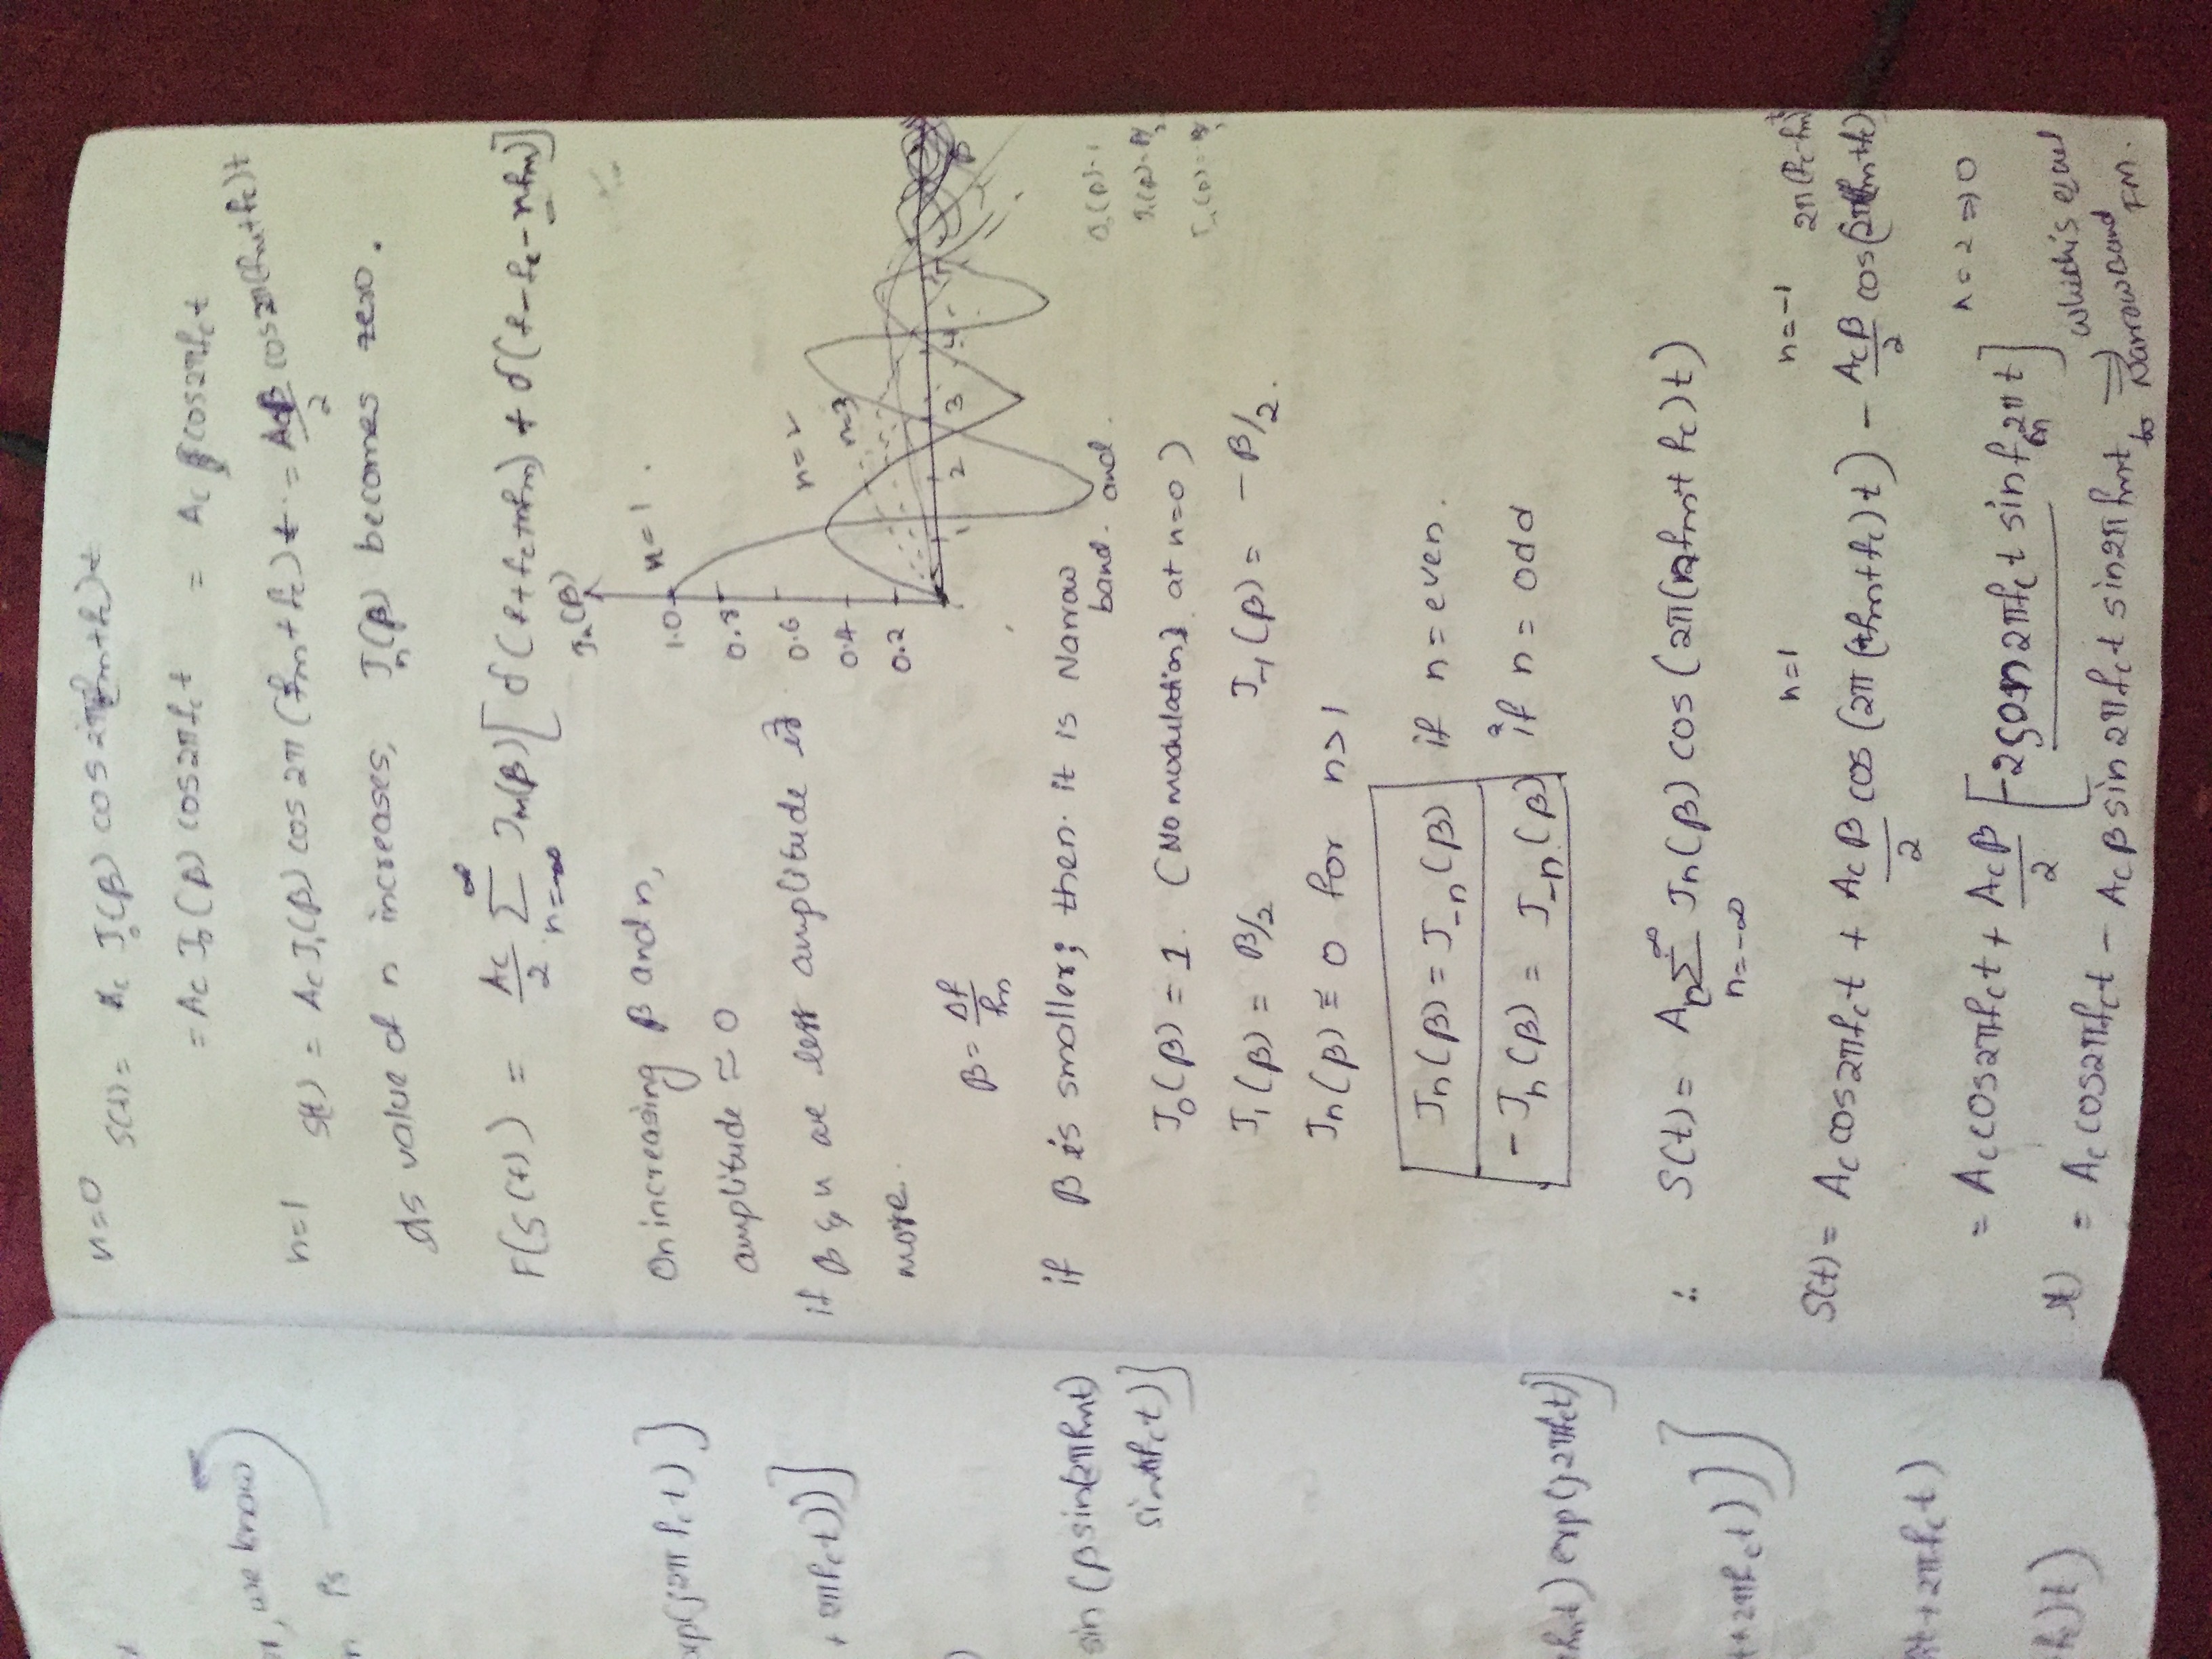 or, we know
n is
exp(j2π fct)]
+ 2πfct))]
sin (β sin(2πfmt)
sin2πfct)]
fmt) exp(j2πfct)]
t+2πfct))]
t+2πfct)
fc)t)
n=0 S(t) = Ac J₀(β) cos 2π(fm+fc)t
= Ac J₀(β) cos2πfct = Ac cos2πfct
n=1 S(t) = Ac J₁(β) cos 2π(fm+fc)t = Acβ/2 cos2π(fm+fc)t
As value of n increases, Jn(β) becomes zero.
F(S(t)) = Ac/2 ∑ n=-∞ ∞ Jn(β)[δ(f+fc+nfm) + δ(f-fc-nfm)]
Jn(β)
On increasing β and n,
n=1
1.0
amplitude ≈ 0
0.8
if β & n are less amplitude is
0.6
n=2
0.4
n=3
more.
0.2
1 2 3 4
β
β = Δf/fm
if β is smaller; then it is Narrow
band. and.
J₀(β) = 1. (No modulation) at n=0)
J₀(β)=1
J₁(β)=β/2
J₁(β) = β/2 J₋₁(β) = -β/2.
Jn(β) ≅ 0 for n>1
Jn(β) = J-n(β) if n = even.
-Jn(β) = J-n(β) if n = odd
∴ S(t) = Ac ∑ n=-∞ ∞ Jn(β) cos (2π(nfm+fc)t)
n=1 n=-1 2π(fc-fm)t
S(t) = Ac cos2πfct + Acβ/2 cos(2π(fm+fc)t) - Acβ/2 cos(2π(fm+fc)
n=2 ⇒ 0
= Ac cos2πfct + Acβ/2 [-2sin2πfct sin fm2πt]
s(t) = Ac cos2πfct - Acβ sin2πfct sin2πfmt → which is equal
to Narrow Band
FM.